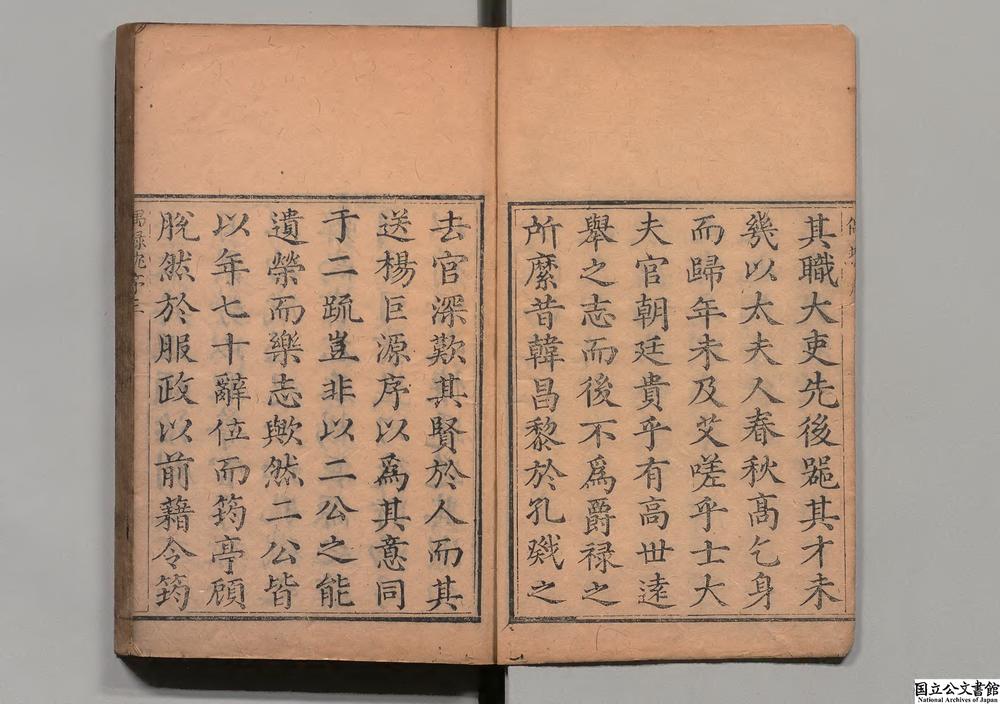 其職大吏先後器其才未
幾以太夫人春秋髙乞身
而歸年未及艾嗟乎士大
夫官朝廷貴乎有高世逺
舉之志而後不爲爵禄之
所縻昔韓昌黎於孔戣之
去官深歎其賢於人而其
送楊巨源序以爲其意同
于二疏豈非以二公之能
遺榮而樂志歟然二公皆
以年七十辭位而筠亭顧
脫然於服政以前藉令筠
国立公文書館
National Archives of Japan